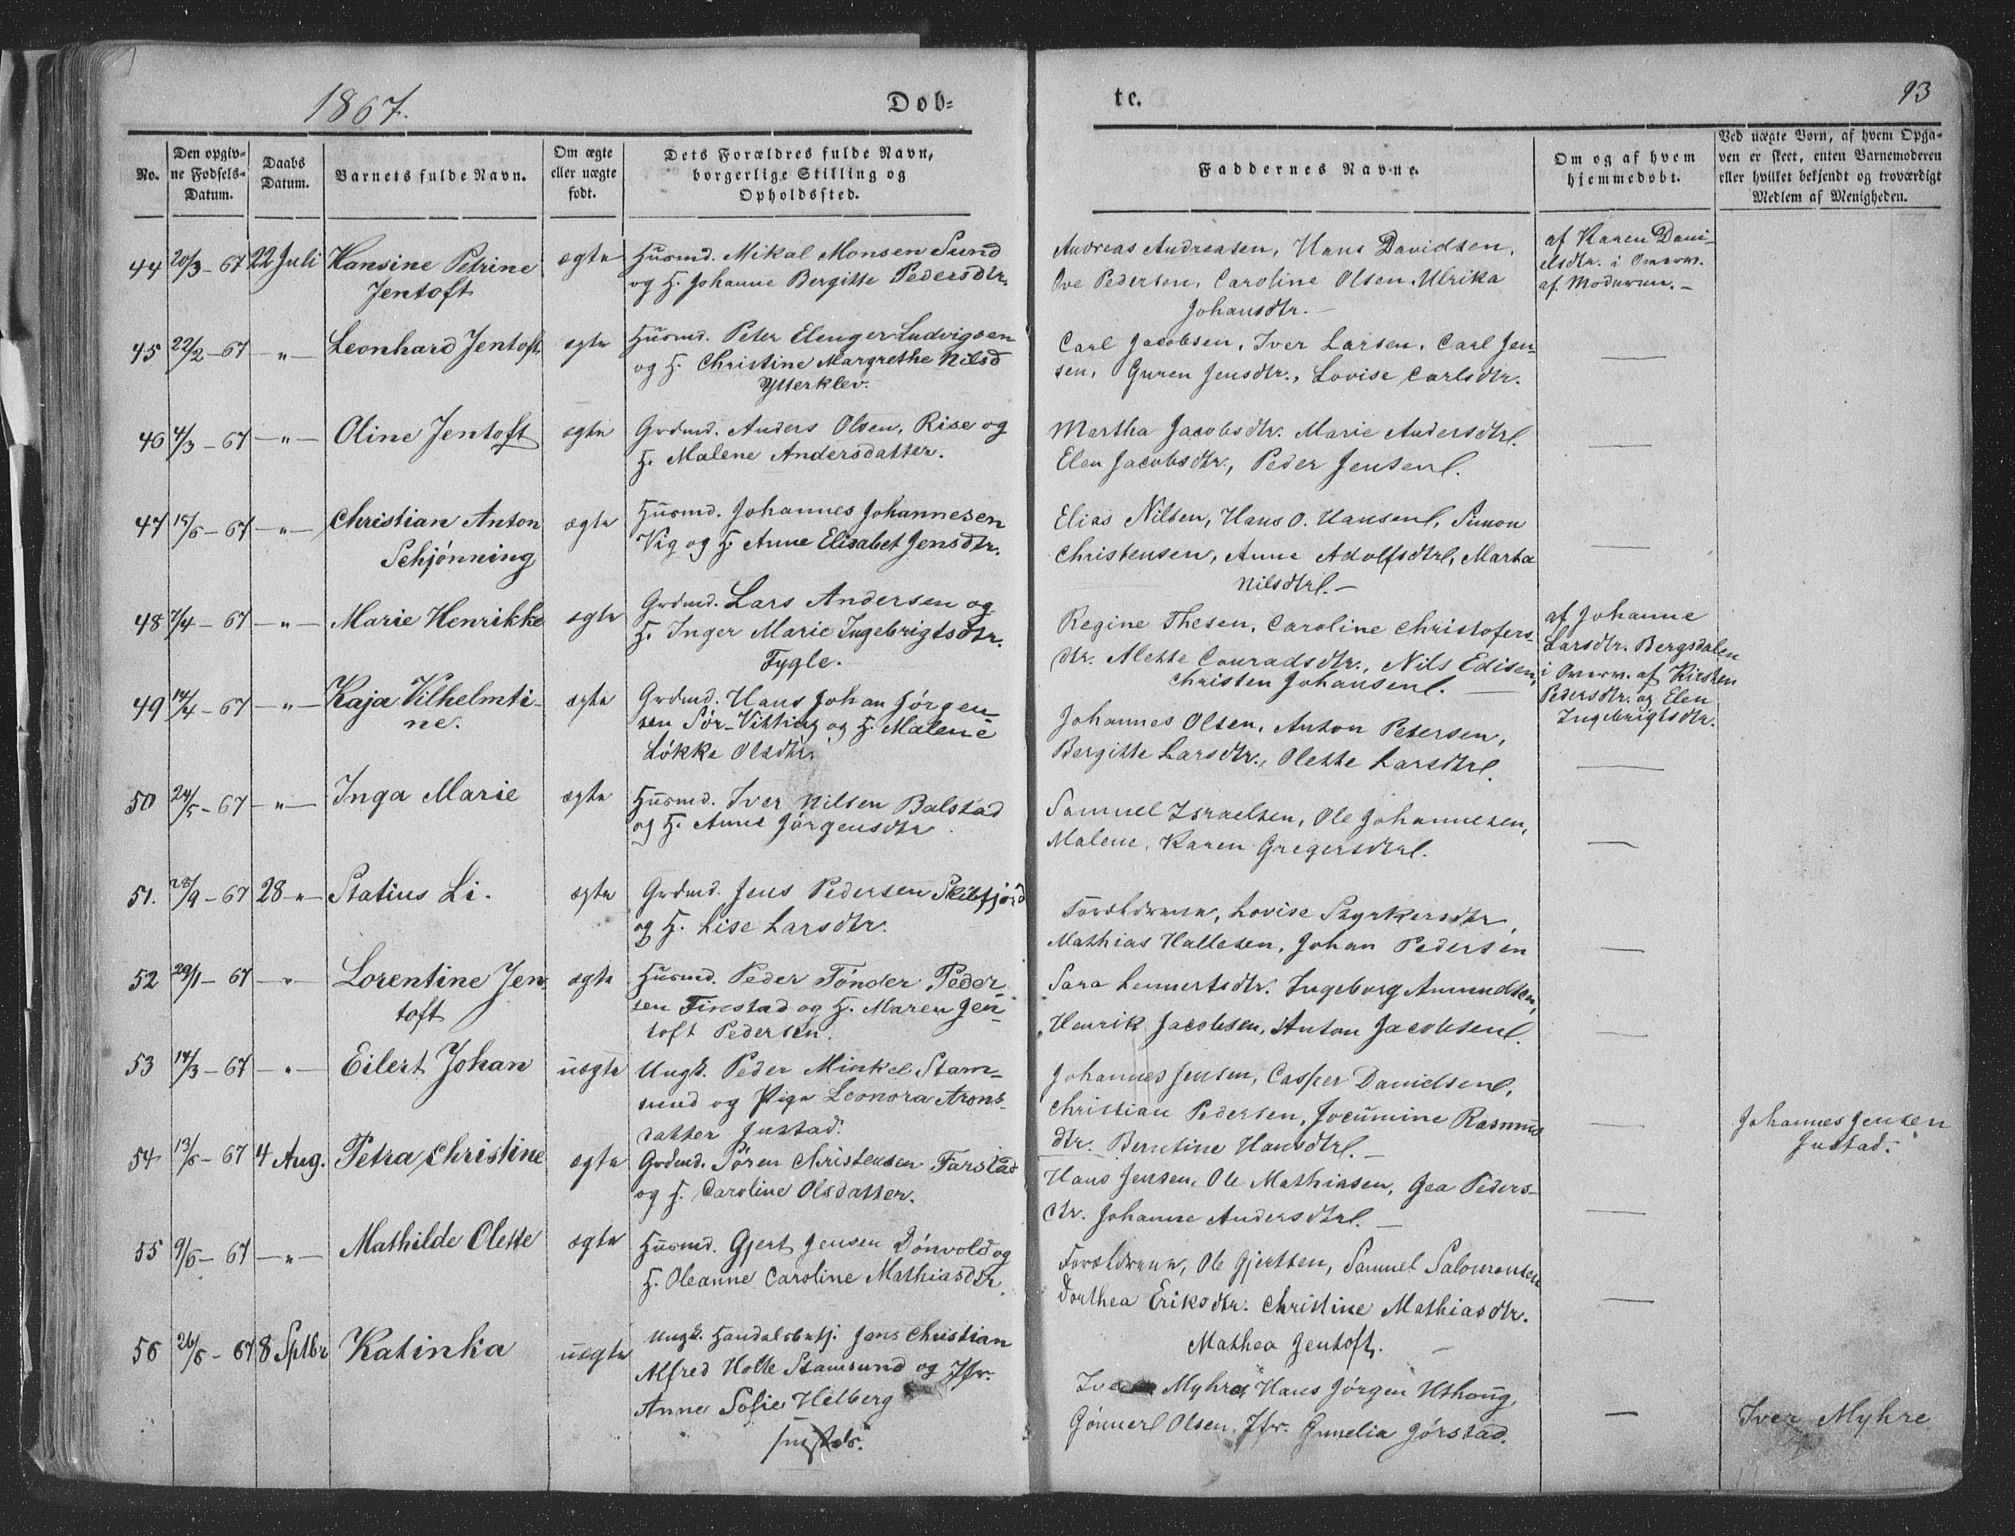 1867.
Døb-
No.
Den opgiv-
ne Fødsels-
Datum.
Daabs
Datum.
Barnets fulde Navn.
Om ægte
eller uægte
født.
Dets Forældres fulde Navn,
borgerlige Stilling og
Opholdssted.
44 20/3-67 22 Juli Hansine Petrine ægte Husmd. Mikal Monsen Sund
Jentoft og H. Johanne Bergitte Pedersdtr.
45 22/2-67 -"- Leonhard Jentoft ægte Husmd. Peter Elenger Ludvigsen
og H. Christine Margrethe Nilsd
Ytterklev.
46 4/3-67 -"- Oline Jentoft ægte Grdmd. Anders Olsen, Rise og
H. Malene Andersdatter.
47 15/5-67 -"- Christian Anton ægte Husmd. Johannes Johannesen
Schjønning Vig og H. Anne Elisabet Jensdtr.
48 7/4-67 -"- Marie Henrikke ægte Grdmd. Lars Andersen og
H. Inger Marie Ingebrigtsdtr.
Fygle.
49 14/4-67 -"- Kaja Vilhelmti- ægte Grdmd. Hans Johan Jørgen
ne. sen Sør-Vitting og H. Malene
Løkke Olsdtr.
50 24/5-67 -"- Inga Marie ægte Husmd. Iver Nilsen Balstad
og H. Anne Jørgensdtr.
51. 28/9-67 28 -"- Statius Li. ægte Grdmd. Jens Pedersen Skifjord
og H. Lise Larsdtr.
52 29/1-67 " Lorentine Jen- ægte Husmd. Peder Tønder Peder-
toft sen Finstad og H. Maren Jen-
toft Pedersen.
53 14/3-67 -"- Eilert Johan uægte Ungk. Peder Minkel Stam-
sund og Pige Leonora Arons-
datter Justad.
54 13/5-67 4 Aug. Petra Christine ægte Grdmd. Søren Christensen Farstad
og H. Caroline Olsdatter.
55 9/5-67 -"- Mathilde Olette ægte Husmd. Gjert Jensen Dønvold og
H. Oleanne Caroline Mathiasdtr.
56 26/5-67 8 Sptbr Katinka uægte Ungk. Handelsbetj. Jens Christian
Alfred Holte Stamsund og Jfr.
Anne Sofie Helberg
te.
93
Faddernes Navne.
Om og af hvem
hjemmedøbt.
Ved uægte Børn, af hvem Opga-
ven er skeet, enten Barnemoderen
eller hvilket bekjendt og troværdigt
Medlem af Menigheden.
Andreas Andreasen, Hans Davidsen,
Ove Pedersen, Caroline Olsen, Ulrika
Johansdtr. -
af Karen Dani-
elsdtr. i Overv.
af Moderen. -
Carl Jacobsen, Iver Larsen, Carl Jen-
sen, Guren Jensdtr., Lovise Carlsdtr.
Martha Jacobsdtr. Marie Andersdtr.
Elen Jacobsdtr., Peder Jensen.
Elias Nilsen, Hans O. Hansen, Simon
Christensen, Anne Adolfsdtr, Martha
Nilsdtr. -
Regine Thesen, Caroline Christofers-
dtr. Alette Conradsdtr., Nils Edisen,
Christen Johansen.
af Johanne
Larsdtr. Bergsdalen
i Overv. af Kirsten
Pedersdtr. og Elen
Ingebrigtsdtr.
Johannes Olsen, Anton Petersen,
Bergitte Larsdtr., Olette Larsdtr.
Samuel Israelsen, Ole Johannesen,
Malene, Karen Gregersdtr.
Forældrene, Lovise Styrkersdtr,
Mathias Hallesen, Johan Pedersen
Sara Lennertsdtr. Ingeborg Amundsen,
Henrik Jacobsen, Anton Jacobsen.
Johannes Jensen, Casper Danielsen,
Christian Pedersen, Jocumine Rasmus
dtr. Berntine Hansdtr. -
Johannes Jensen
Justad.
Hans Jensen, Ole Mathiasen, Gea Peders-
dtr. Johanne Andersdtr. -
Forældrene, Ole Gjertsen, Samuel Salomonsen
Dorthea Eriksdtr. Christine Mathiasdtr.
Mathea Jentoft.
Iver Myhre, Hans Jørgen Uthoug,
Gunnerl Olsen, Jfr. Gunelia Jørstad.
Iver Myhre